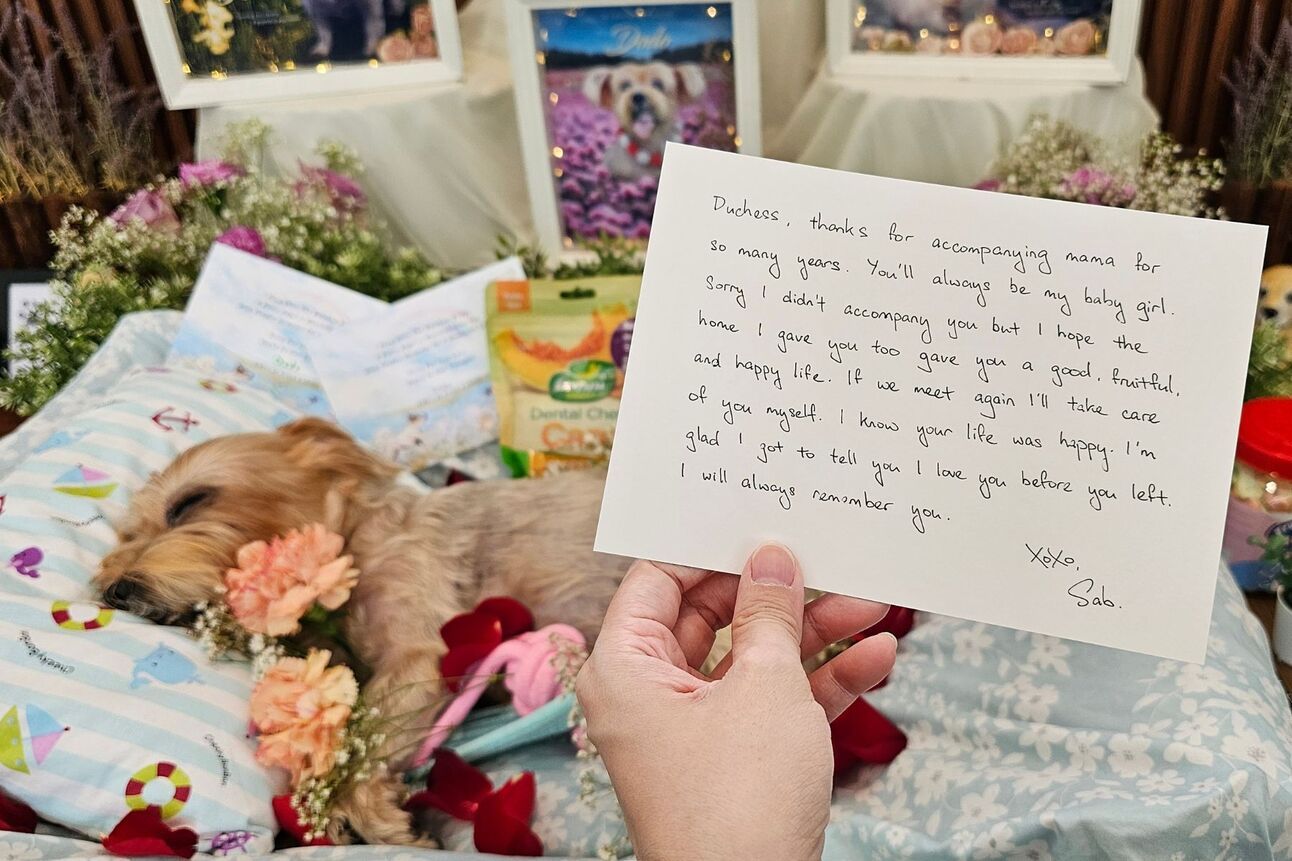 Dudu
Dental Che
Duchess, thanks for accompanying mama for
so many years. You'll always be my baby girl.
Sorry I didn't accompany you but I hope the
home I gave you too gave you a good, fruitful,
and happy life. If we meet again I'll take care
of you myself. I know your life was happy. I'm
glad I got to tell you I love you before you left.
I will always remember you.
XoXo,
Sab.